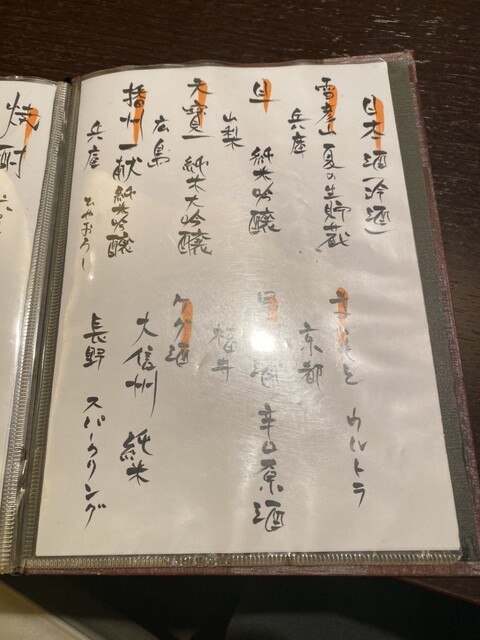 日本酒(冷酒)
雪彦山 夏の生貯蔵
兵庫
純米吟醸
山梨
天寶一 純米大吟醸
広島
播州一献 純米吟醸
兵庫 ひやおろし
ウルトラ
京都
辛口原酒
福井
ケグ酒
大信州 純米
長野 スパークリング
焼酎